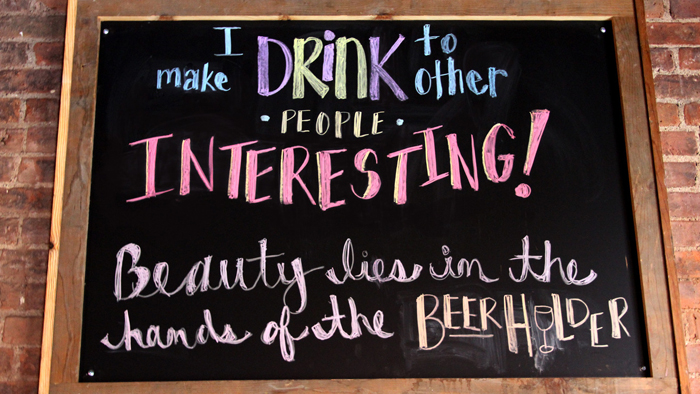 I DRINK to
make other
• PEOPLE •
INTERESTING!
Beauty lies in the
hands of the BEERHOLDER